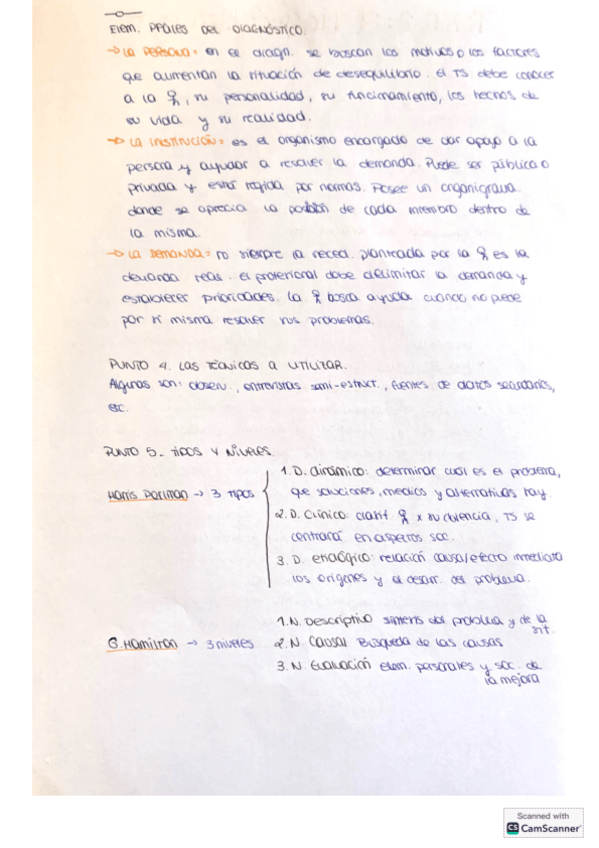 Elem. PPales del Diagnóstico.
→ La persona = en el diagn. se buscan los motivos o los factores
que aumentan la situación de desequilibrio. El TS debe conocer
a la , su personalidad, su funcimamiento, los hechos de
su vida y su realidad.
→ La institución = es el organismo encargado de dar apoyo a la
persona y ayudar a resolver la demanda. Puede ser pública o
privada y estar regida por normas. Posee un organigrama
donde se aprecia la posición de cada miembro dentro de
la misma.
→ La demanda = no siempre la neces. planteada por la es la
demanda real. el profesional debe delimitar la demanda y
establecer prioridades. La busca ayuda cuando no puede
por sí misma resolver sus problemas.
PUNTO 4. Las técnicas a utilizar.
Algunas son: observ., entrevistas semi-estruct., fuentes de datos secundarios,
etc.
PUNTO 5. Tipos y niveles.
Harris Perlman → 3 tipos
1. D. dinámico: determinar cuál es el problema,
que soluciones, medios y alternativas hay.
2. D. Clínico: clasif. x su dolencia, TS se
centrará en aspectos soc.
3. D. etiológico: relación causa/efecto inmediata
los orígenes y el desarr. del problema.
G. Hamilton → 3 niveles
1. N. Descriptivo síntesis del problema y de la sit.
2. N. Causal Búsqueda de las causas
3. N. Evaluación elem. personales y soc. de
la mejora
Scanned with
CS CamScanner